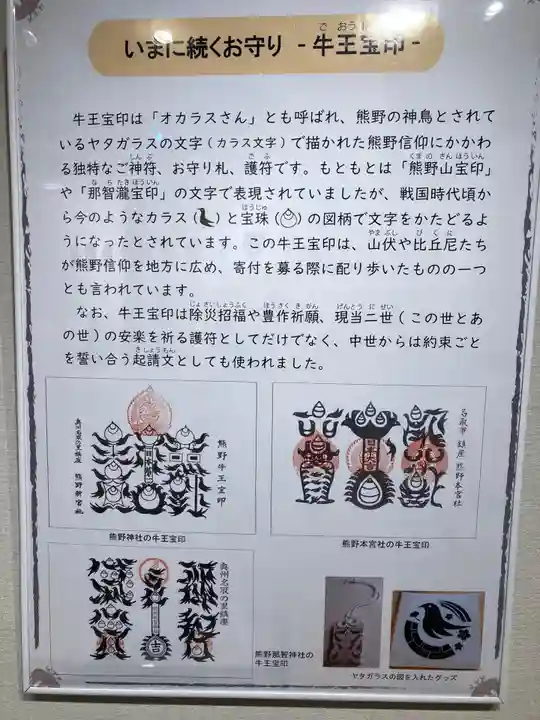 いまに続くお守り - 牛王宝印 -
牛王宝印は「オカラスさん」とも呼ばれ、熊野の神鳥とされ
ているヤタガラスの文字(カラス文字)で描かれた熊野信仰にかかわ
る独特なご神符、お守り札、護符です。もともとは「熊野山宝印」
や「那智瀧宝印」の文字で表現されていましたが、戦国時代頃か
ら今のようなカラス( )と宝珠( )の図柄で文字をかたどるよ
うになったとされています。この牛王宝印は、山伏や比丘尼たち
が熊野信仰を地方に広め、寄付を募る際に配り歩いたものの一つ
とも言われています。
なお、牛王宝印は除災招福や豊作祈願、現当二世(この世とあ
の世)の安楽を祈る護符としてだけでなく、中世からは約束ごと
を誓い合う起請文としても使われました。
熊野牛王宝印
熊野新宮社
熊野神社の牛王宝印
名取市 鎮座 熊野本宮社
熊野本宮社の牛王宝印
奥州名取の里鎮座
熊野那智神社の
牛王宝印
ヤタガラスの図を入れたグッズ